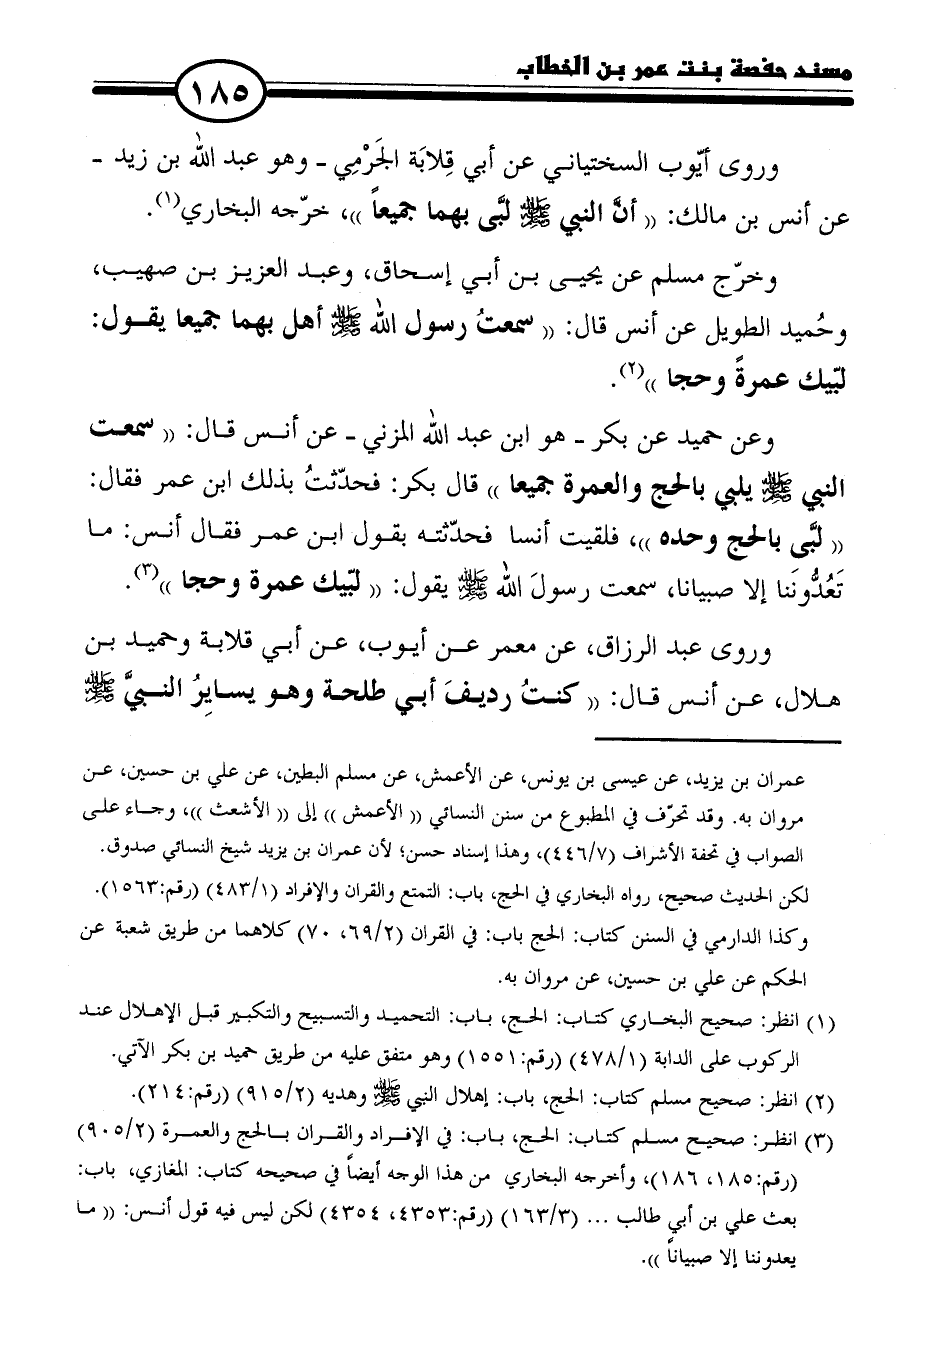 مسند حفصة بنت عمر بن الخطاب
١٨٥
وروى أيّوب السختياني عن أبي قِلابَة الجَرْمِي - وهو عبد الله بن زيد -
عن أنس بن مالك: (( أنَّ النبي ﷺ لبَّى بهما جميعاً ))، خرّجه البخاري(١).
وخرّج مسلم عن يحيى بن أبي إسحاق، وعبد العزيز بن صهيب،
وحُميد الطويل عن أنس قال: (( سمعتُ رسول الله ﷺ أهل بهما جميعا يقول:
لبّيك عمرةً وحجا ))(٢).
وعن حميد عن بكر - هو ابن عبد الله المزني - عن أنس قال: (( سمعت
النبي ﷺ يلبي بالحج والعمرة جميعا )) قال بكر: فحدّثتُ بذلك ابن عمر فقال:
(( لبَّى بالحج وحده ))، فلقيت أنسا فحدّثته بقول ابن عمر فقال أنس: ما
تَعُدُّونَنا إلا صبيانا، سمعت رسولَ الله ﷺ يقول: (( لبّيك عمرة وحجا ))(٣).
وروى عبد الرزاق، عن معمر عن أيوب، عن أبي قلابة وحميد بن
هلال، عن أنس قال: (( كنتُ رديفَ أبي طلحة وهو يسايِرُ النبيَّ ﷺ
عمران بن يزيد، عن عيسى بن يونس، عن الأعمش، عن مسلم البطين، عن علي بن حسين، عن
مروان به. وقد تحرّف في المطبوع من سنن النسائي (( الأعمش )) إلى (( الأشعث ))، وجاء على
الصواب في تحفة الأشراف (٤٤٦/٧)، وهذا إسناد حسن؛ لأن عمران بن يزيد شيخ النسائي صدوق.
لكن الحديث صحيح، رواه البخاري في الحج، باب: التمتع والقران والإفراد (٤٨٣/١) (رقم:١٥٦٣).
وكذا الدارمي في السنن كتاب: الحج باب: في القران (٦٩/٢، ٧٠) كلاهما من طريق شعبة عن
الحكم عن علي بن حسين، عن مروان به.
(١) انظر: صحيح البخاري كتاب: الحج، باب: التحميد والتسبيح والتكبير قبل الإهلال عند
الركوب على الدابة (٤٧٨/١) (رقم:١٥٥١) وهو متفق عليه من طريق حميد بن بكر الآتي.
(٢) انظر: صحيح مسلم كتاب: الحج، باب: إهلال النبي ﷺ وهديه (٩١٥/٢) (رقم:٢١٤).
(٣) انظر: صحيح مسلم كتاب: الحج، باب: في الإفراد والقران بالحج والعمرة (٩٠٥/٢)
(رقم:١٨٥، ١٨٦)، وأخرجه البخاري من هذا الوجه أيضاً في صحيحه كتاب: المغازي، باب:
بعث علي بن أبي طالب ... (١٦٣/٣) (رقم:٤٣٥٣، ٤٣٥٤) لكن ليس فيه قول أنس: (( ما
يعدوننا إلا صبياناً )).